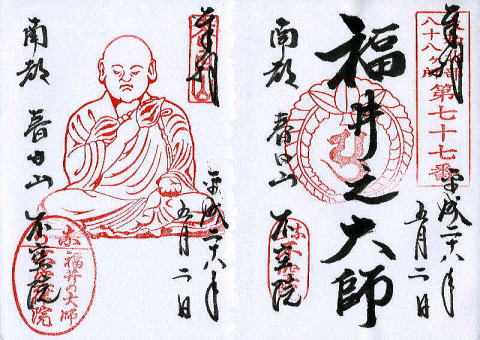 奉拝
八十八ヶ所
第七十七番
福井之大師
平成二十八年
五月二日
南都
春日山
不空院
奉拝
平成二十八年
五月二日
南都
春日山
不空院
福井の大師